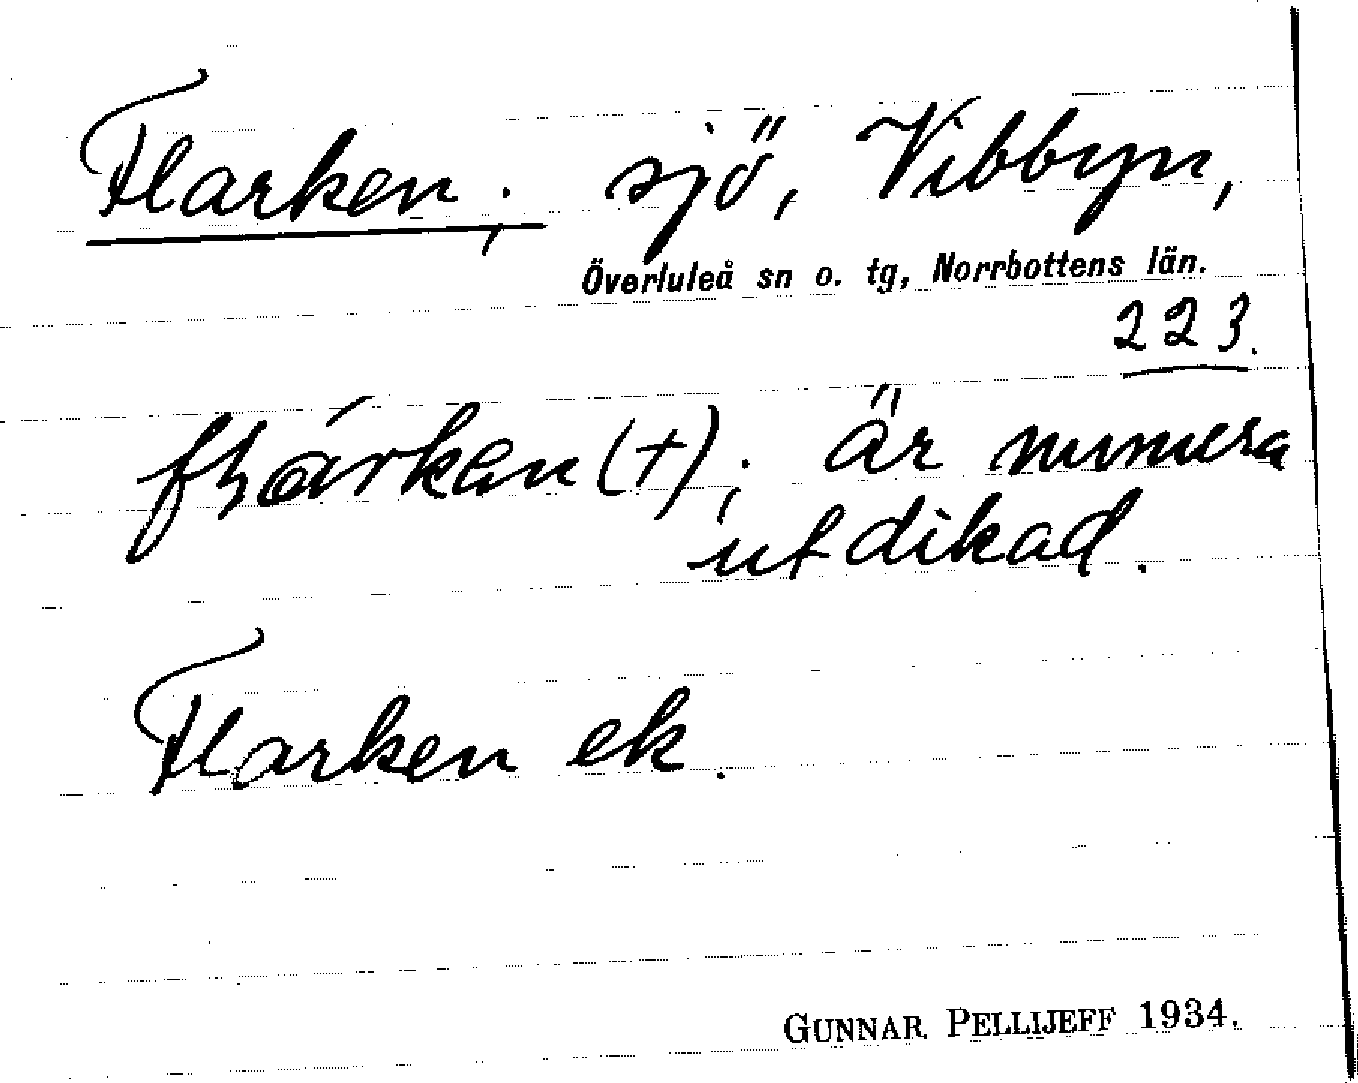 Flarken; sjö, Vibbyn,
Överluleå sn o. tg, Norrbottens län.
223.
(+); är numera
utdikad.
Flarken ek.
GUNNAR PELLIJEFF 1934.